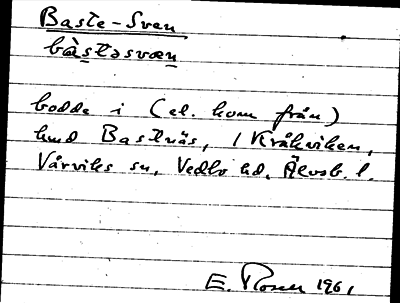 Baste-Sven
bàstəsvæn
bodde i (el. kom från)
hmd Bastnäs, i Kråkviken,
Vårviks sn, Vedbo hd. Älvsb. l.
E. Rosen 1961